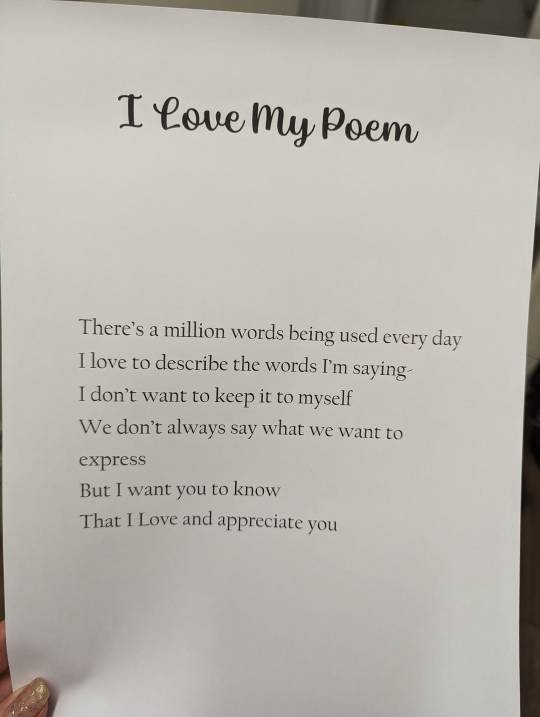 I Love My Poem
There's a million words being used every day
I love to describe the words I'm saying-
I don't want to keep it to myself
We don't always say what we want to
express
But I want you to know
That I Love and appreciate you